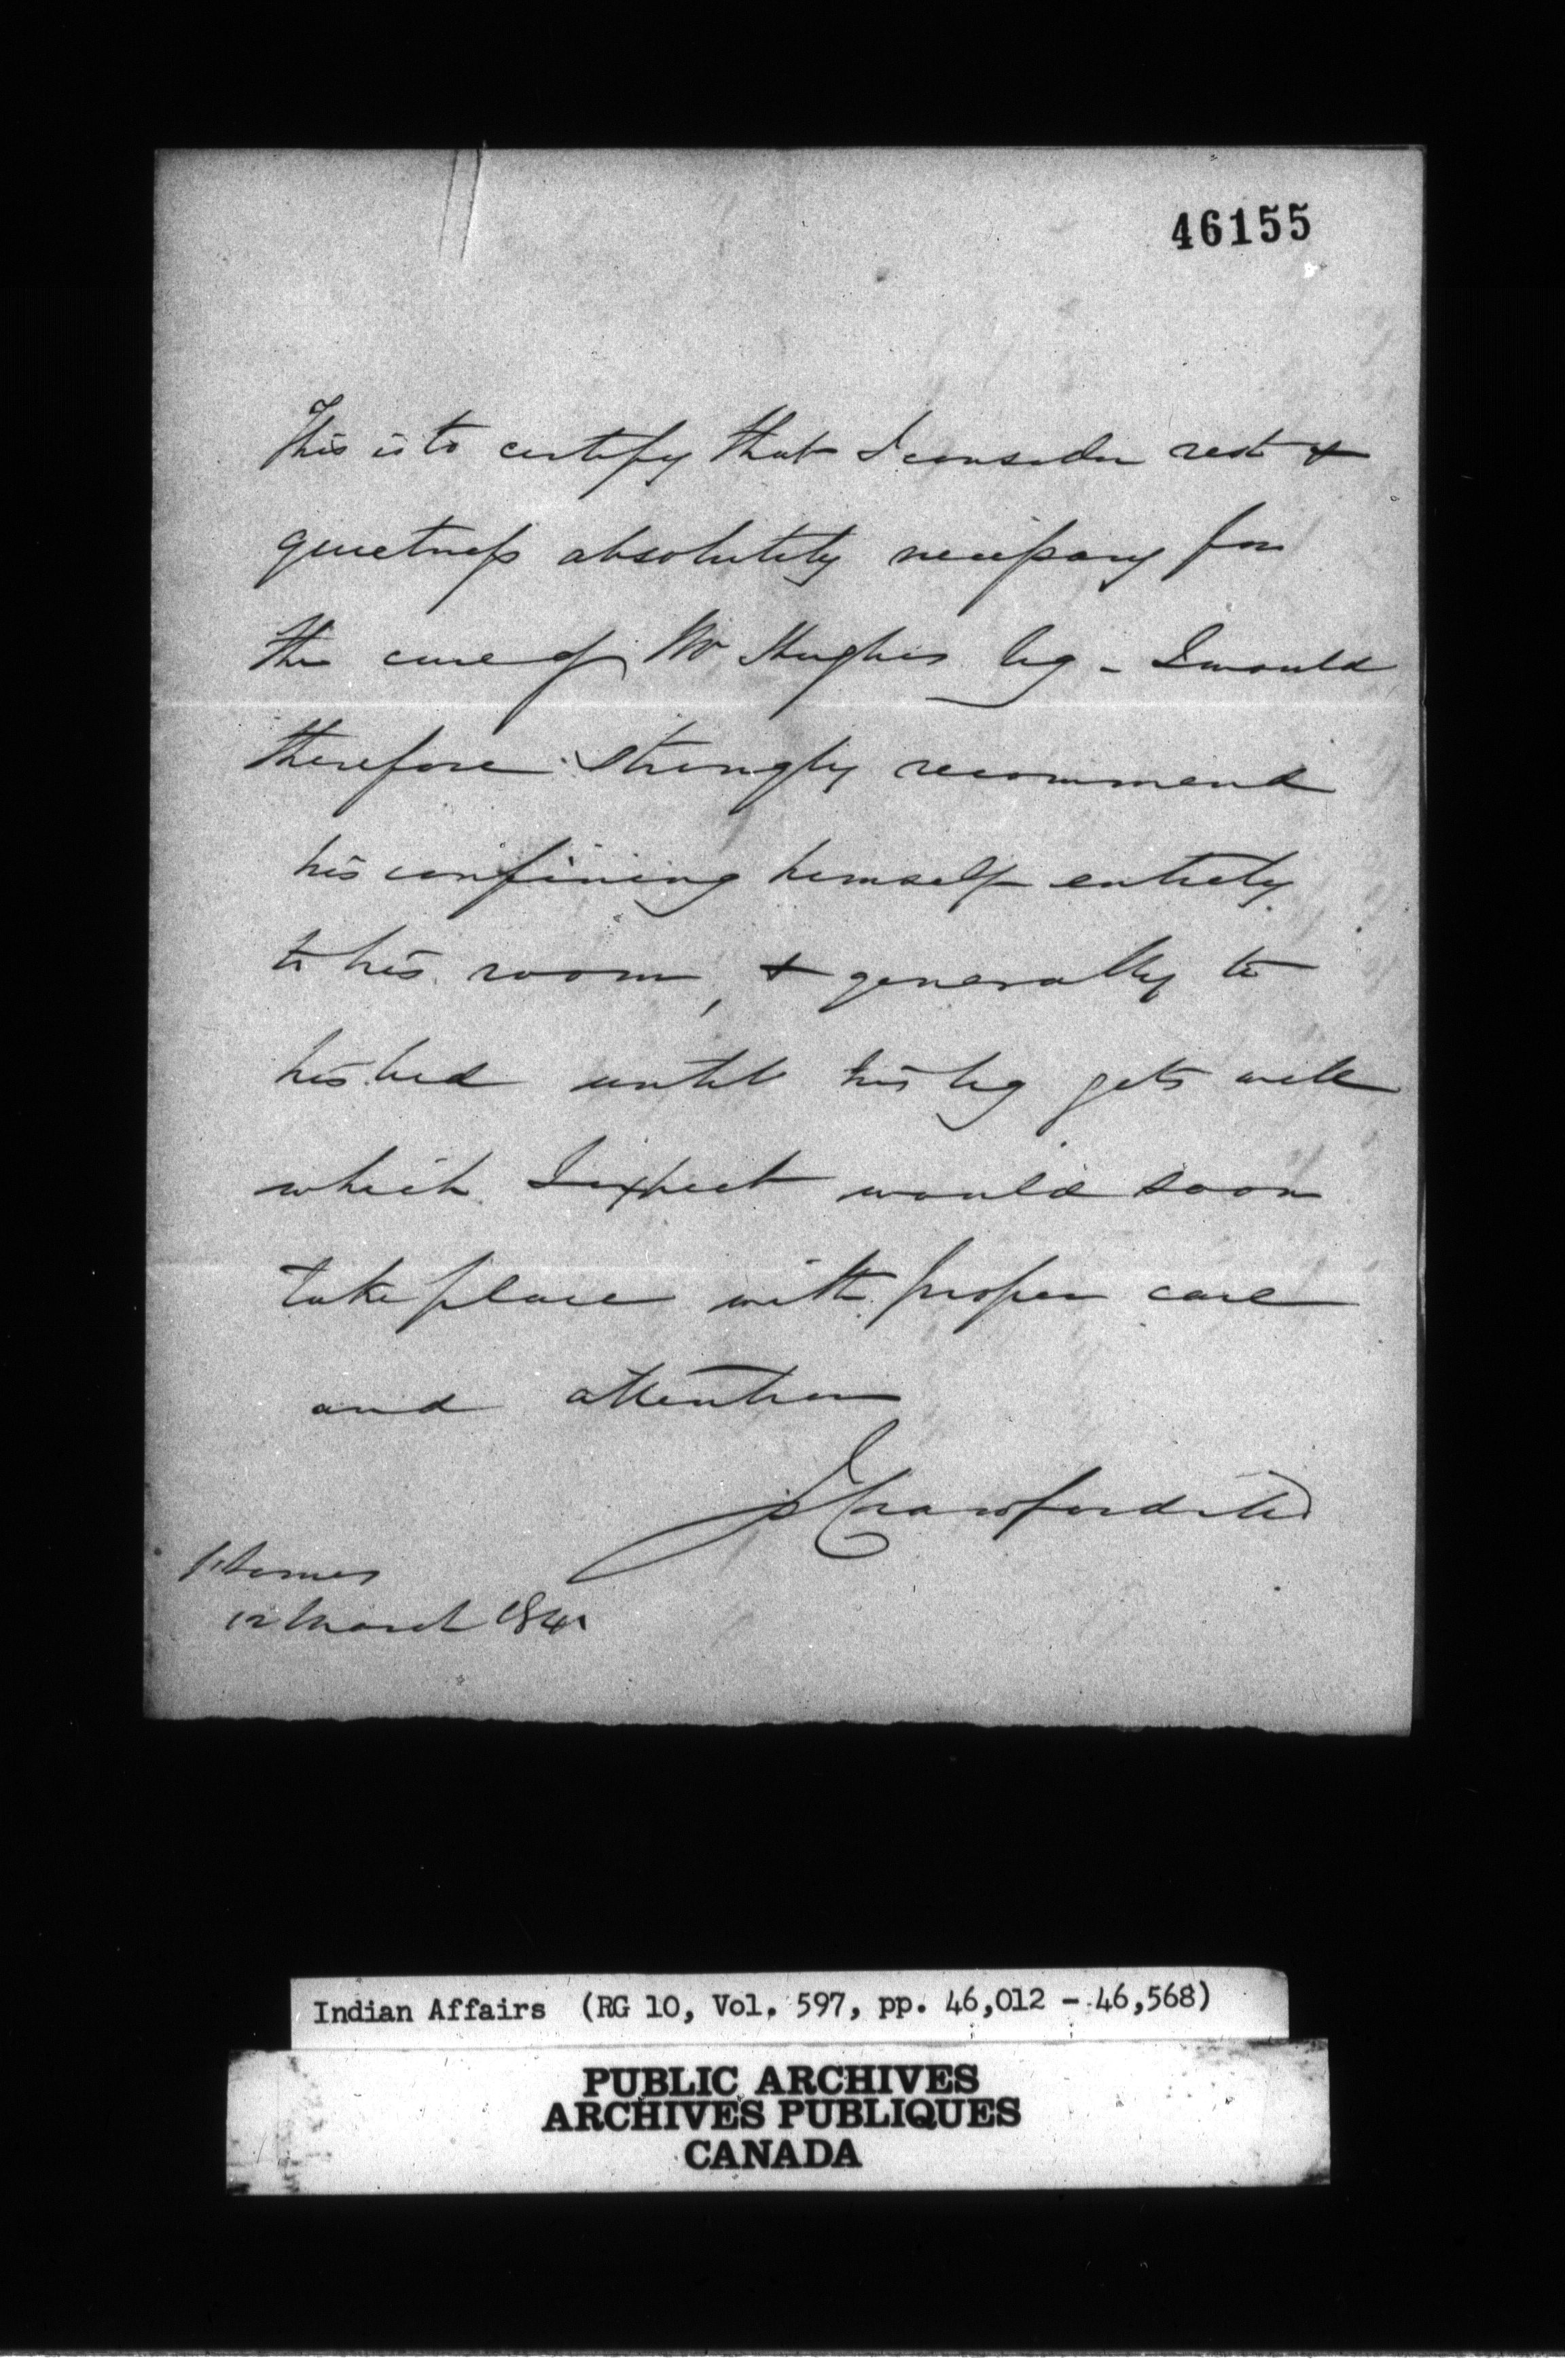 46155
This is to certify that I consider rest &
quietness absolutely necessary for
the cure of Mr Hughes leg - I would
therefore strongly recommend
his confining himself entirely
to his room, & generally to
his bed until his leg gets well
which I expect would soon
take place with proper care
and attention
J Crawford MD
St James
12 March 1841
Indian Affairs (RG 10, Vol. 597, pp. 46,012 - 46,568)
PUBLIC ARCHIVES
ARCHIVES PUBLIQUES
CANADA